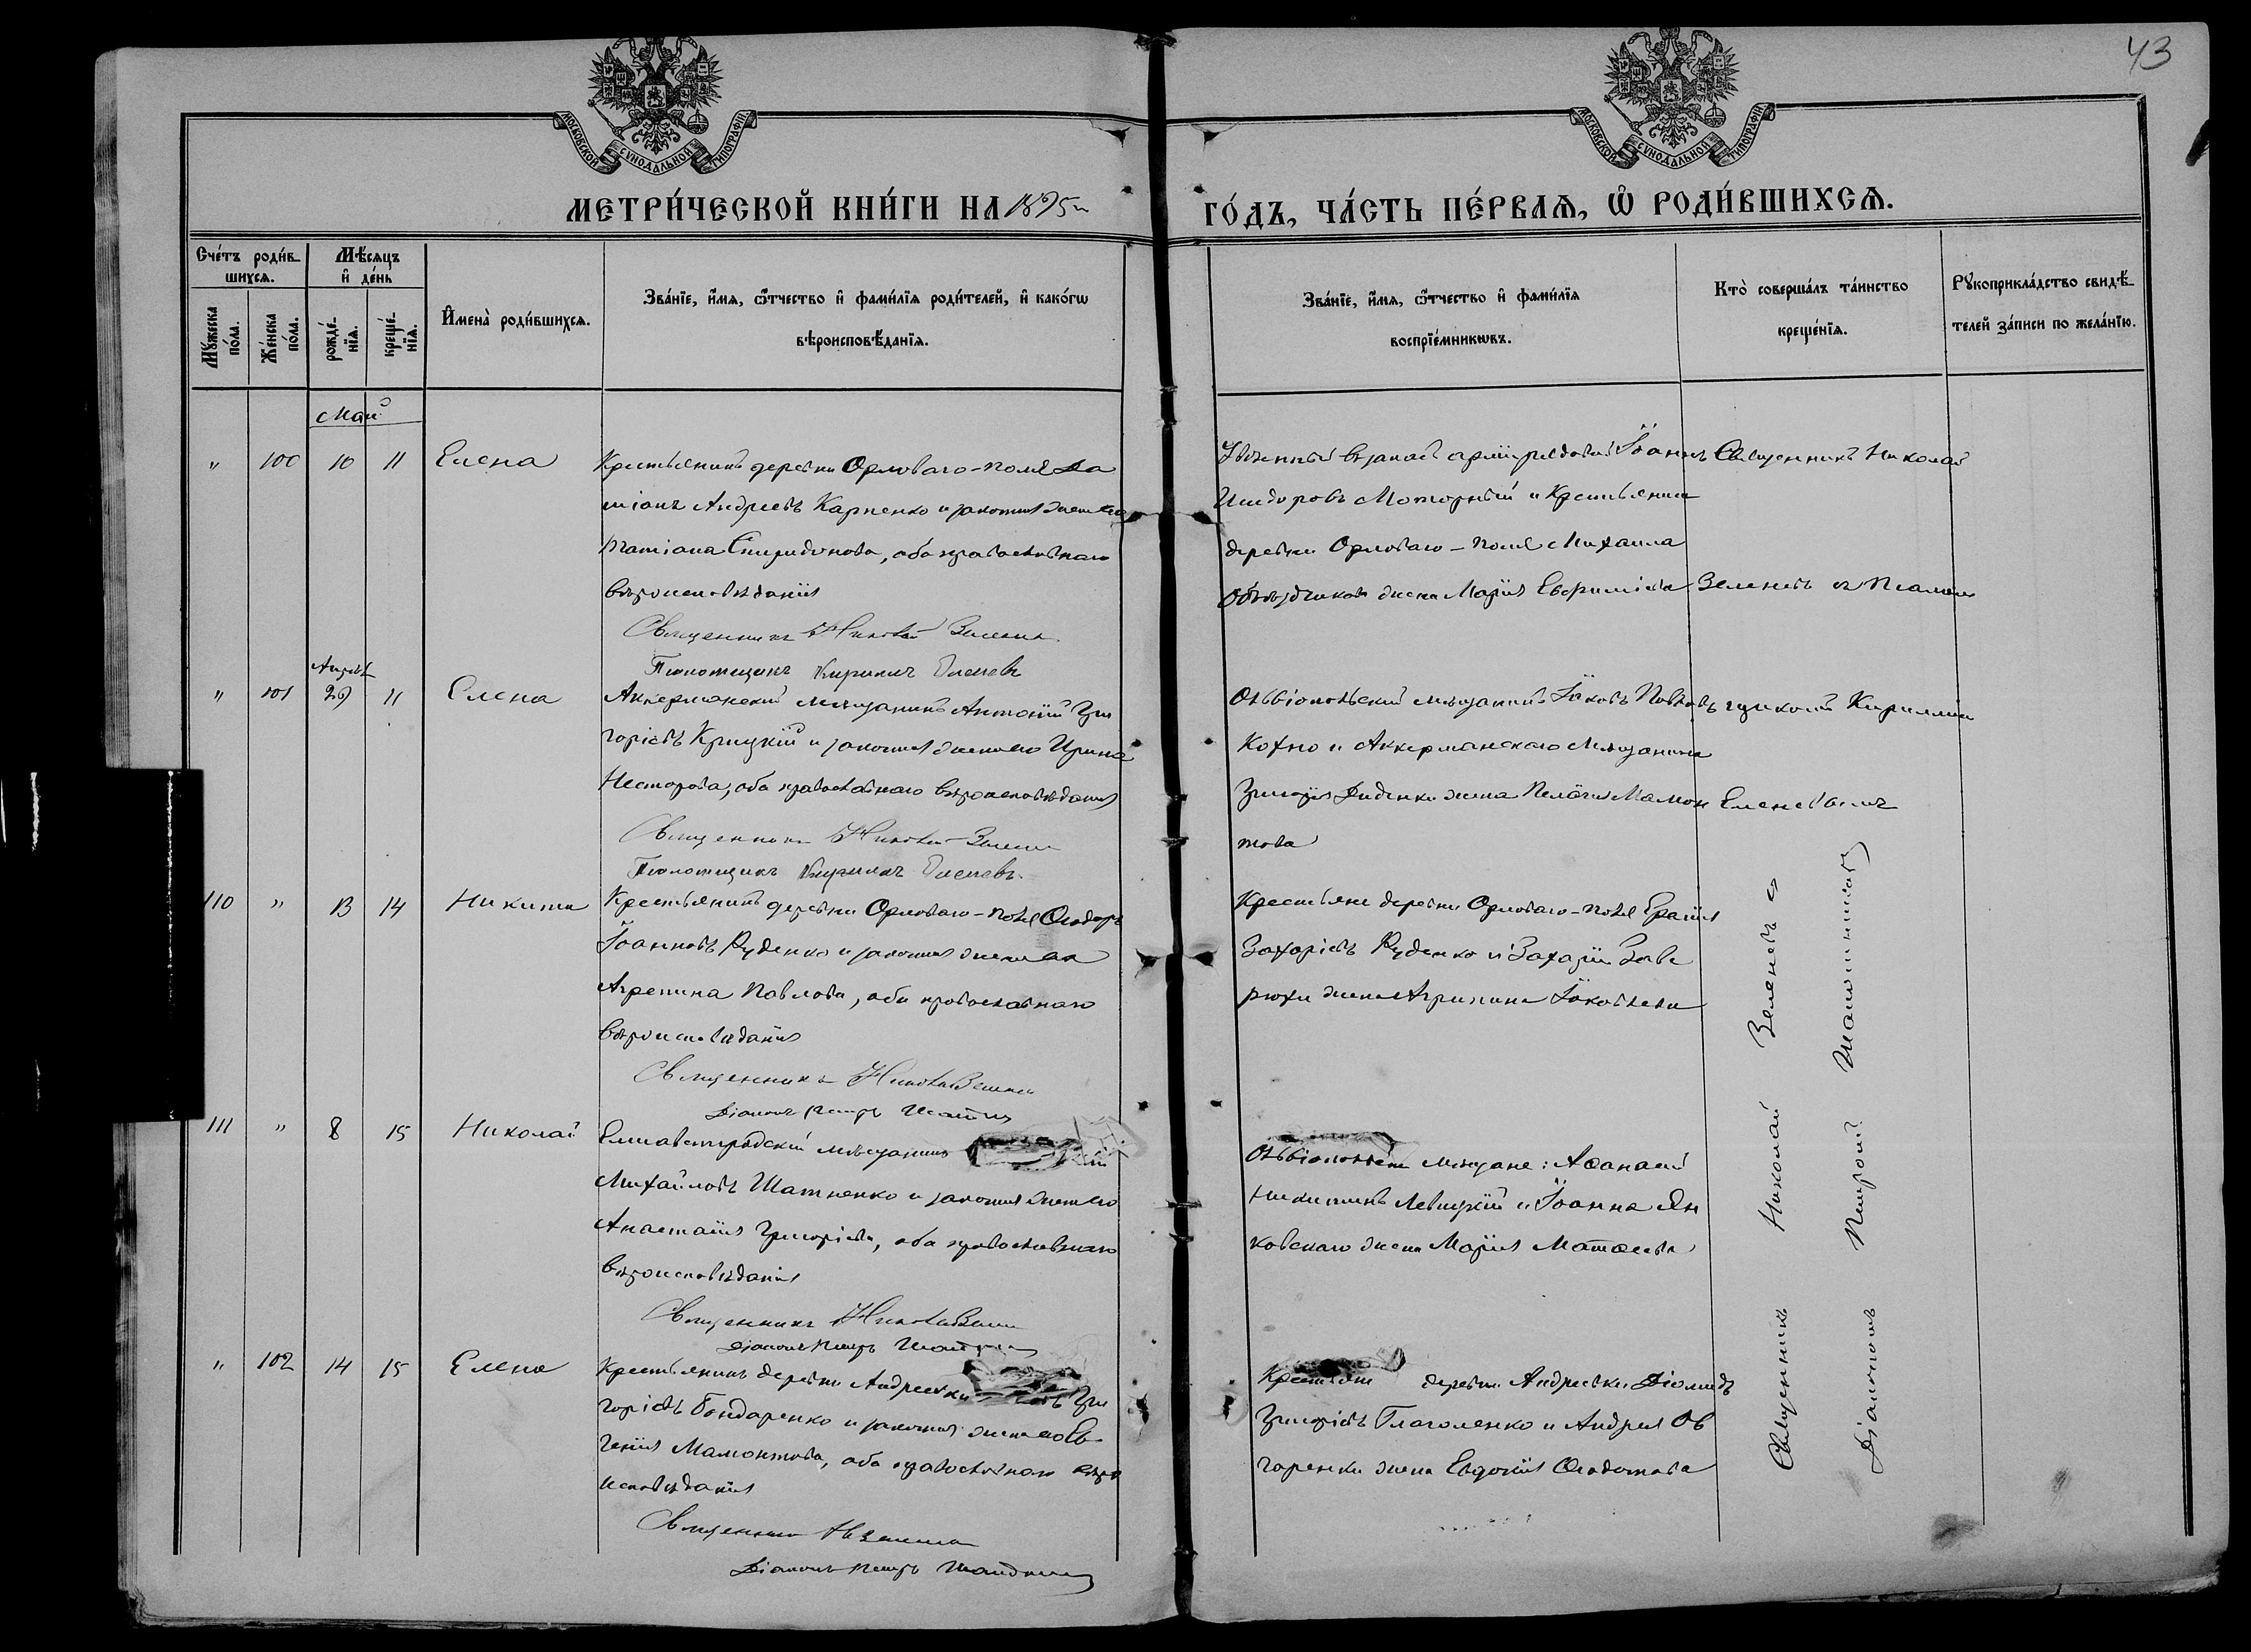 43
МОСКОВСКОЙ СУНОДАЛЬНОЙ ТИПОГРАФІИ.
МОСКОВСКОЙ СУНОДАЛЬНОЙ ТИПОГРАФІИ.
МЕТРИ́ЧЕСКОЙ КНИ́ГИ НА 1895 ГО́ДЪ, ЧА́СТЬ ПЕ́РВАѦ, Ѡ҆ РОДИ́ВШИХСѦ.
Сче́тъ роди́в-
шихсѧ.
Мꙋ́жеска по́ла.
Же́нска по́ла.
Мѣ́сѧцъ
и҆ де́нь
рожде́-
нїѧ.
креще́-
нїѧ.
И҆мена̀ роди́вшихсѧ.
Зва́нїе, и҆́мѧ, ѻ҆́тчество и҆ фами́лїѧ роди́телей, и҆ како́гѡ
вѣроисповѣ́данїѧ.
Зва́нїе, и҆́мѧ, ѻ҆́тчество и҆ фами́лїѧ
воспрїе́мникѡвъ.
Кто̀ соверша́лъ та́инство
креще́нїѧ.
Рꙋкоприкла́дство свидѣ́-
телей за́писи по жела́нїю.
Май
" 100 10 11 Елена
Крестьянинъ деревни Орловаго-поля Да
міанъ Андреевъ Карпенко и законная жена его
Татіана Спиридонова, оба православнаго
вѣроисповѣданія
Священникъ Николай Зеленевъ
Псаломщикъ Кириллъ
Уволенный въ запасъ арміи рядовой Іоаннъ
Исидоровъ Моторный и Крестьянина
деревни Орловаго-поля Михаила
Объѣздчикова жена Марія Евфиміева
Священникъ Николай
Зеленевъ съ Псалом
щикомъ Кирилломъ
Апрѣль
" 101 29 11 Елена
Аккерманскій мѣщанинъ Антоній Гри
горіевъ Крицкій и законная жена его Ирина
Несторова, оба православнаго вѣроисповѣданія
Священникъ Николай Зеленевъ
Псаломщикъ Кириллъ
Овидіопольскій мѣщанинъ Іаковъ Павловъ
Кохно и Аккерманскаго мѣщанина
Григорія Диденки жена Пелагія Мамон
това
110 " 13 14 Никита
Крестьянинъ деревни Орловаго-поля Ѳеодоръ
Іоанновъ Руденко и законная жена его
Агрепина Павлова, оба православнаго
вѣроисповѣданія
Священникъ Николай Зеленевъ
Діаконъ Петръ
Крестьяне деревни Орловаго-поля
Захаріевъ Руденко и Захаріи Заве
рюхи жена Агрипина Іаковлева
111 " 8 15 Николай
Елисаветградскій мѣщанинъ
Михайловъ Шатненко и законная жена его
Анастасія Григоріева, оба православнаго
вѣроисповѣданія
Священникъ Николай Зеленевъ
Діаконъ Петръ
мѣщане: Аѳанасій
Никитинъ Левицкій и Іоанна Ян
ковскаго жена Марія Матѳеева
" 102 14 15 Елена
Крестьянинъ деревни Андреевки Гри
горіевъ Бондаренко и законная жена его Ев
генія Мамонтова, оба православнаго вѣро
исповѣданія
Священникъ Н Зеленевъ
Діаконъ Петръ
деревни Андреевки Діомидъ
Григоріевъ Глаголенко и Андрея Ов
чаренки жена Евдокія Ѳеодотова
Священникъ Николай Зеленевъ съ
Діакономъ Петромъ